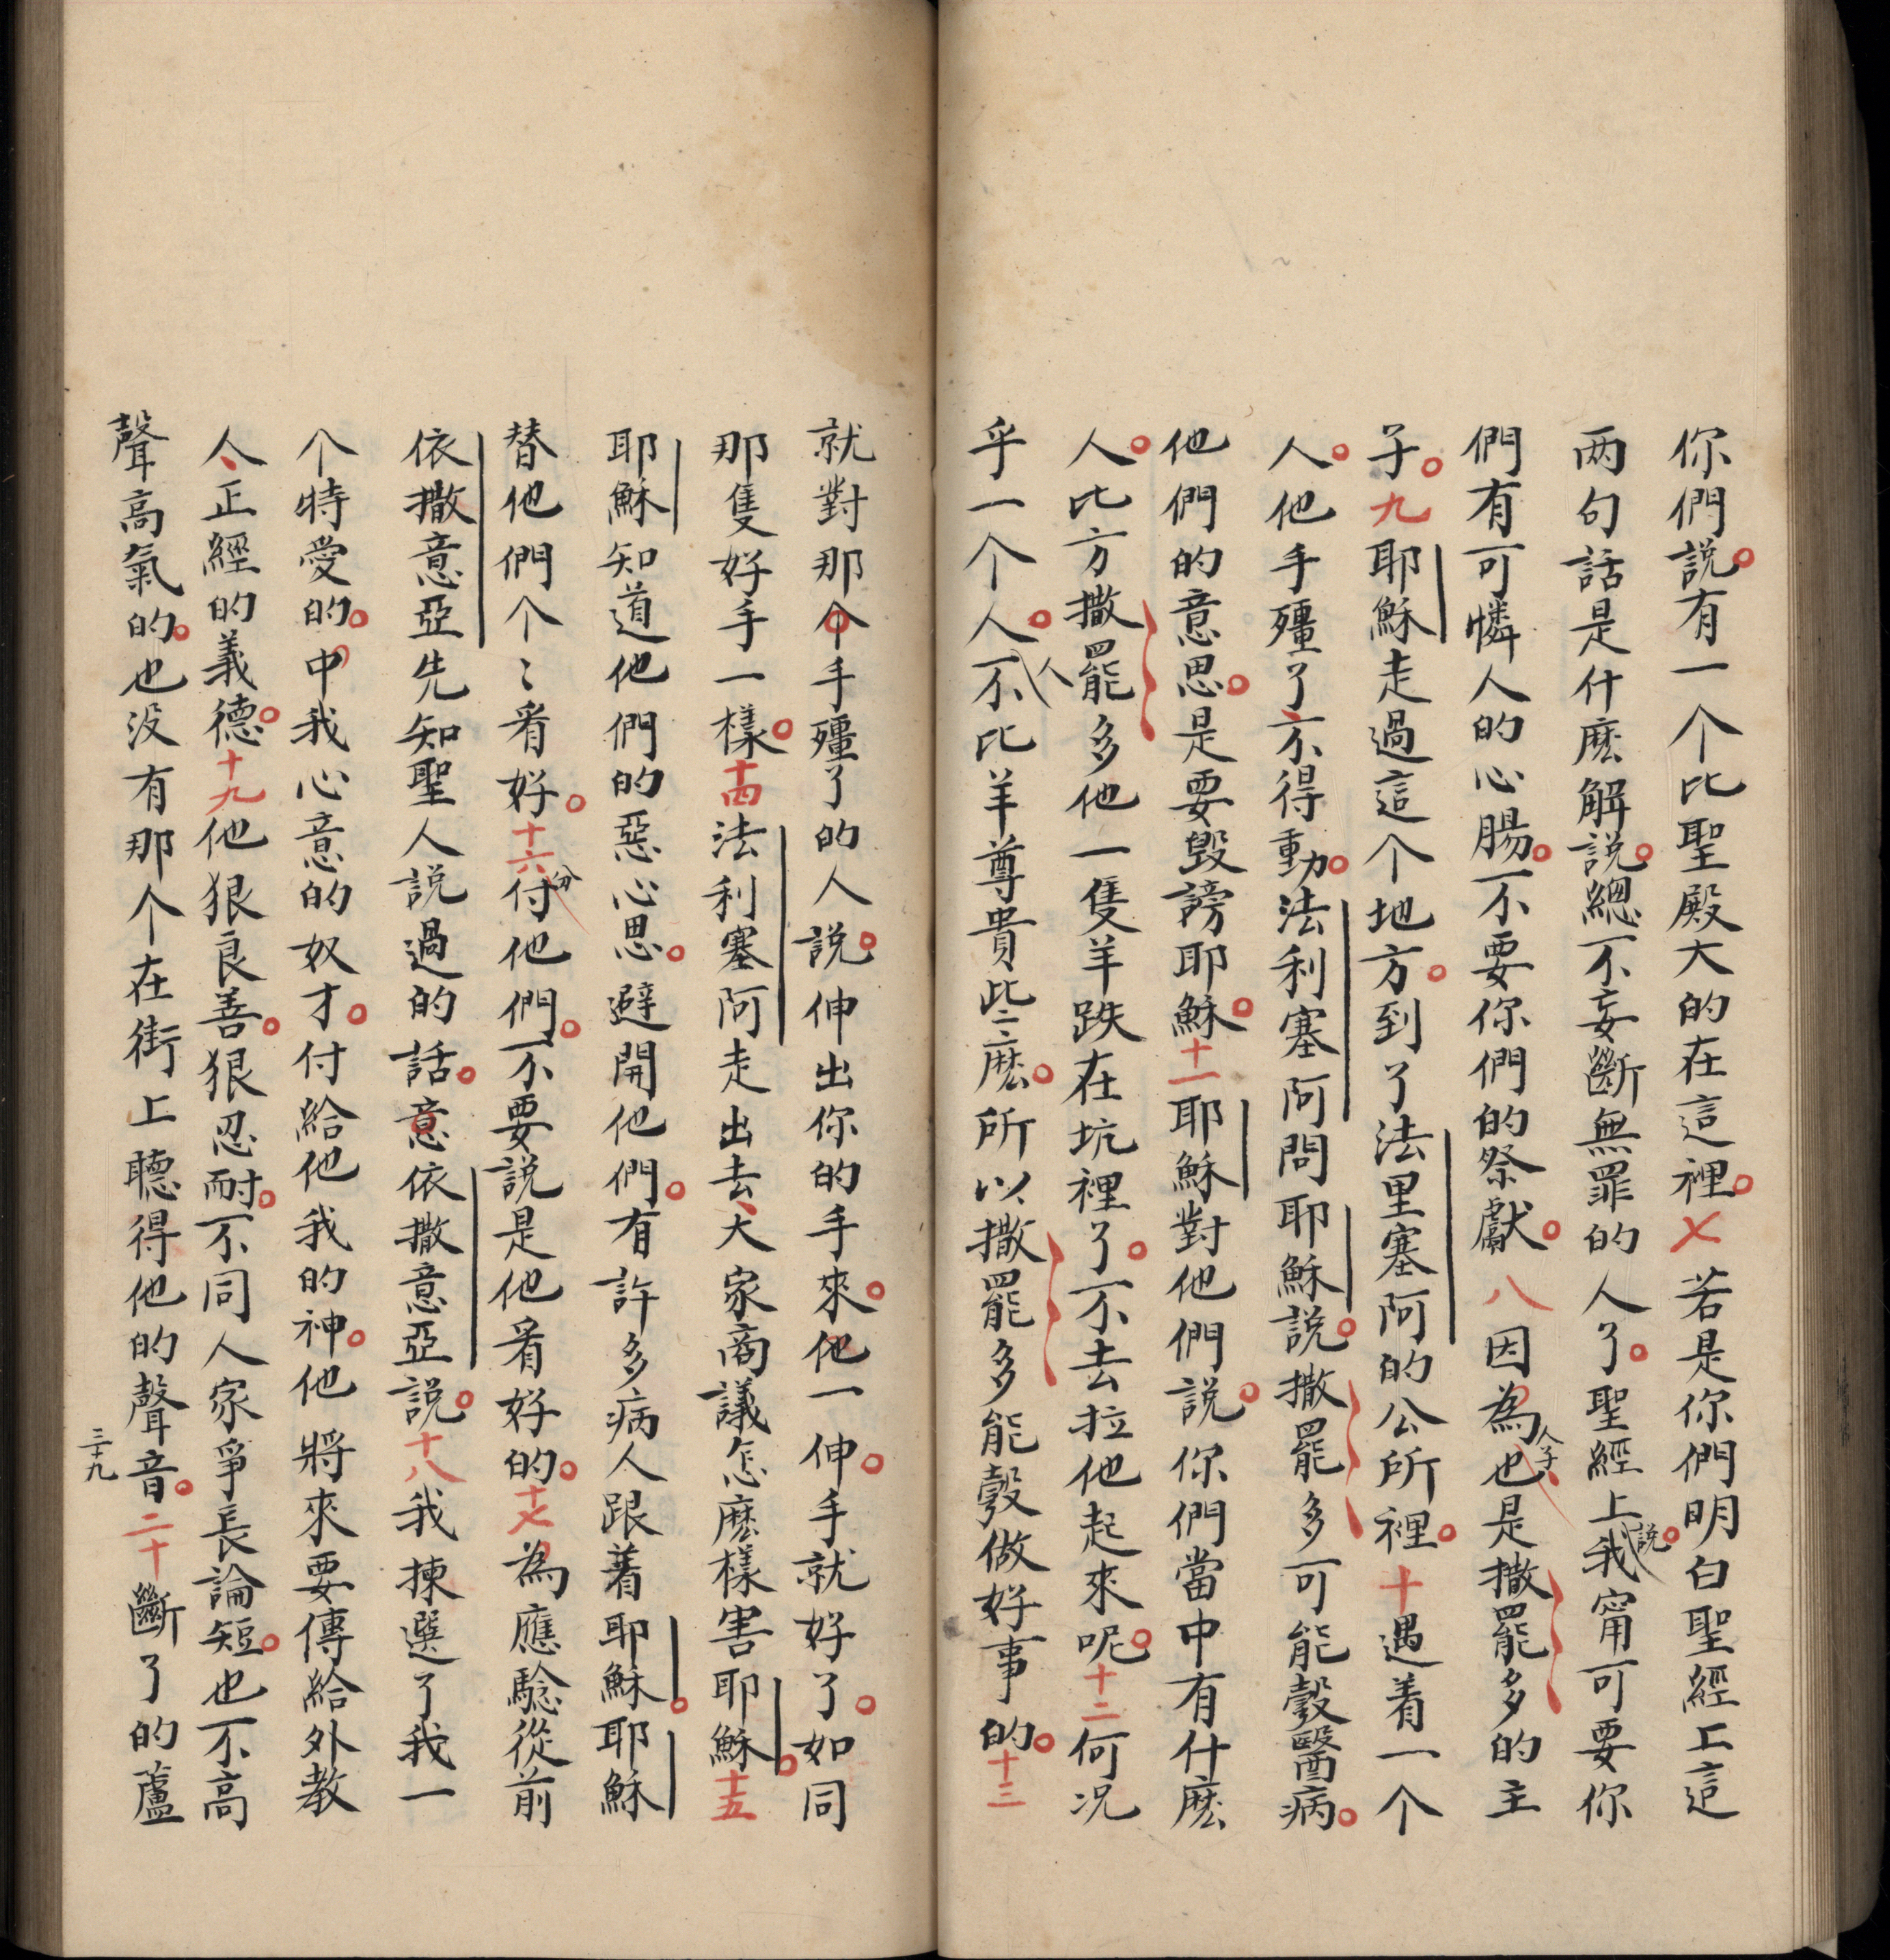 你們説。有一个比聖殿大的在這裡。七若是你們明白聖經上這
两句話是什麽解説。總不妄斷無罪的人了。聖經上我説。甯可要你
們有可憐人的心腸。不要你們的祭獻。八因為人子也是撒罷多的主
子。九耶穌走過這个地方。到了法里塞阿的公所裡。十遇着一个
人。他手殭了、不得動。法利塞阿問耶穌説。撒罷多可能彀醫病。
他們的意思。是要毀謗耶穌。十一耶穌對他們説。你們當中有什麽
人。比方撒罷多他一隻羊跌在坑裡了。不去拉他起來呢。十二何况
乎一个人。人不比羊尊貴些麽。所以撒罷多能彀做好事的。十三
就對那个手殭了的人説。伸出你的手來。他一伸。手就好了。如同
那隻好手一樣。十四法利塞阿走出去、大家商議怎麽樣害耶穌。十五
耶穌知道他們的惡心思。避開他們。有許多病人跟着耶穌。耶穌
替他們个〻看好。十六分付他們。不要説是他看好的。十七為應騐從前
依撒意亞先知聖人説過的話。意依撒意亞説。十八我揀選了我一
个特愛的。中我心意的奴才。付給他我的神。他將來要傳給外教
人、正經的義德。十九他狠良善。狠忍耐。不同人家爭長論短。也不高
聲高氣的。也没有那个在街上聽得他的聲音。二十斷了的蘆
三十九